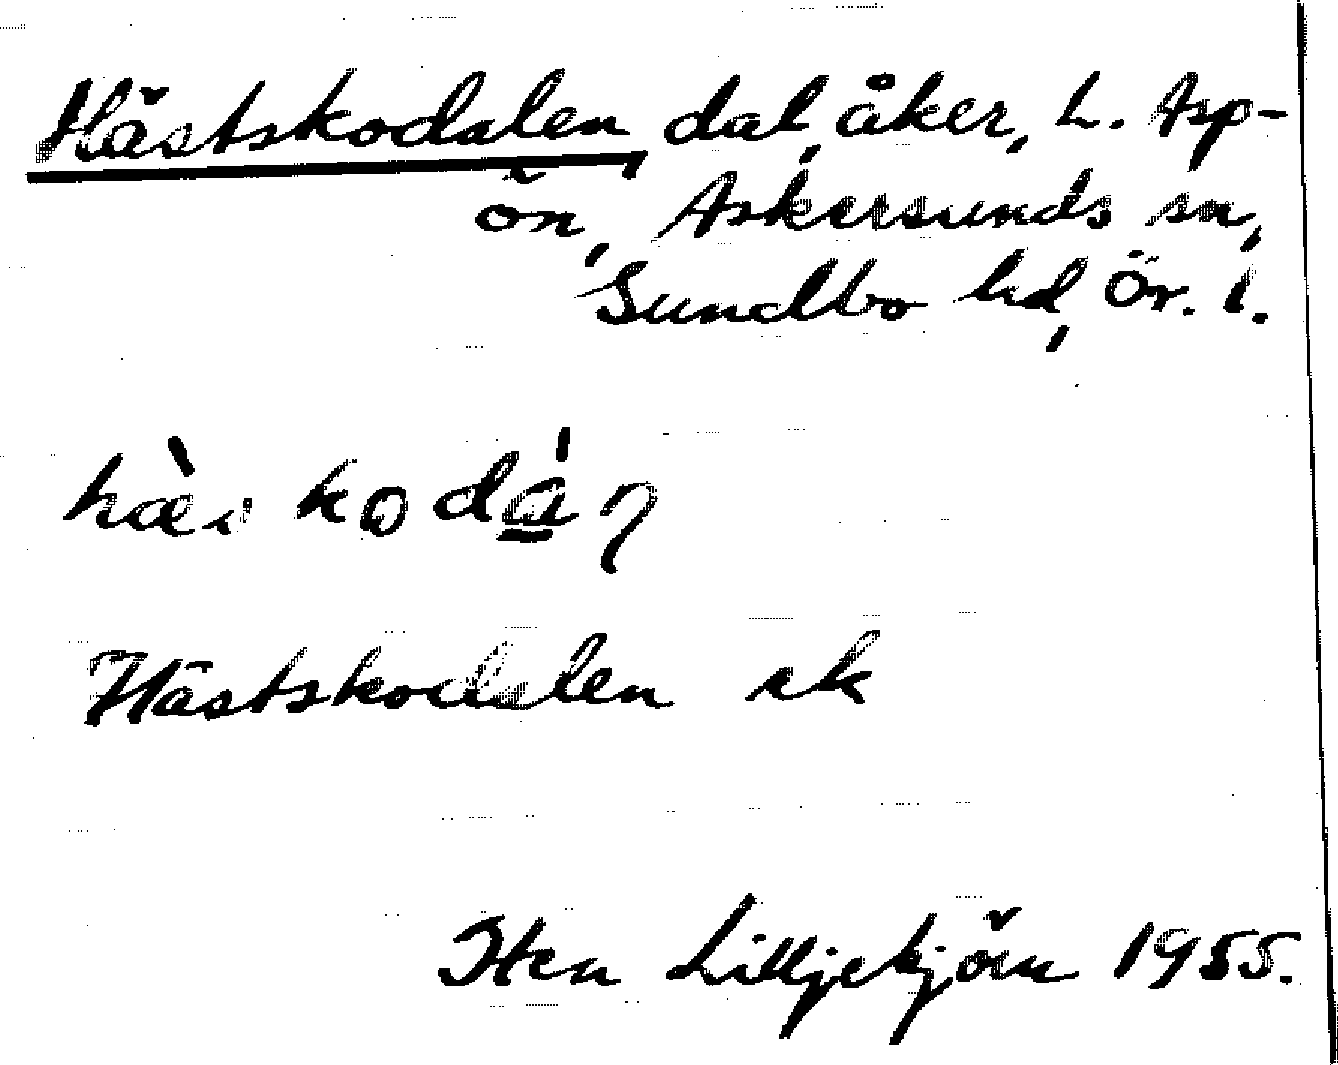 Hästskodalen, dal, åker, L. Asp-
ön, Askersunds sn,
Sundbo hd, Ör. l.
Hästskodalen ek
Sten Lilljekjörn 1955.